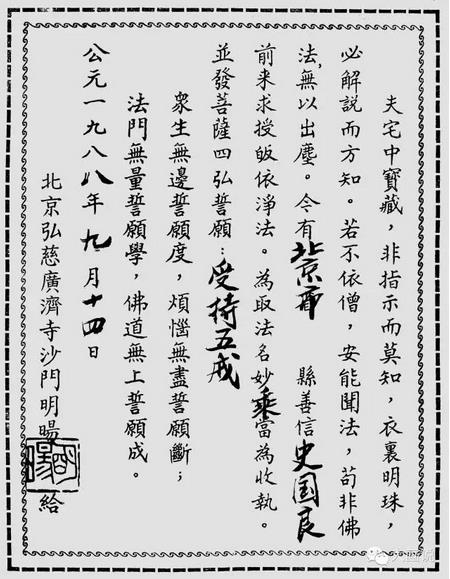 夫宅中寶藏，非指示而莫知，衣裏明珠，
必解說而方知。若不依僧，安能聞法，茍非佛
法，無以出塵。今有北京市　縣善信史国良
前来求授皈依淨法。為取法名妙乘當為收執。
並發菩薩四弘誓願：受持五戒
衆生無邊誓願度，煩惱無盡誓願斷；
法門無量誓願學，佛道無上誓願成。
公元一九八八年九月十四日
北京弘慈廣濟寺沙門明暘　給
明暘